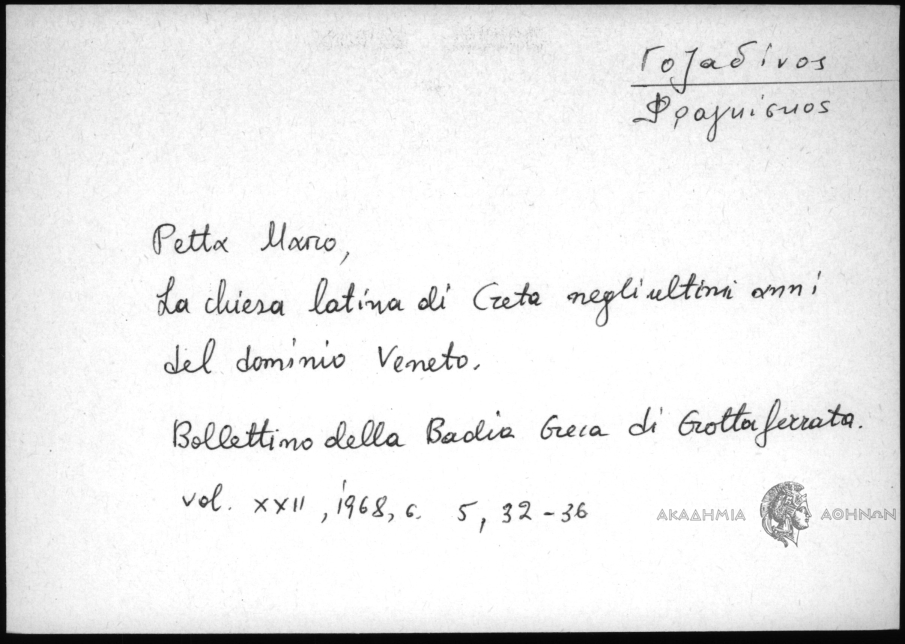 Γοζαδίνος
Φραγκίσκος
Petta Marco,
La chiesa latina di Creta negli ultimi anni
del dominio Veneto.
Bollettino della Badia Greca di Grottaferrata.
vol. XXII, 1968, σ. 5, 32-36
ΑΚΑΔΗΜΙΑ ΑΘΗΝΩΝ